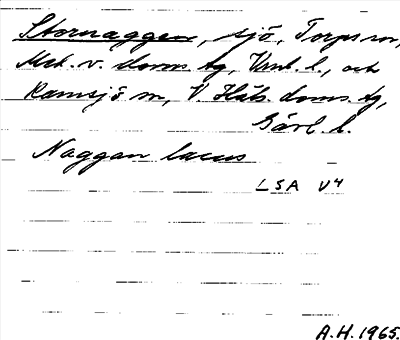 Stornaggen, sjö, Torps sn,
Med. v. doms. tg, Vnl. l., och
Ramsjö sn, V. Häls. doms. tg,
Gävl. l.
Naggan lacus
LSA V4
A.H. 1965.